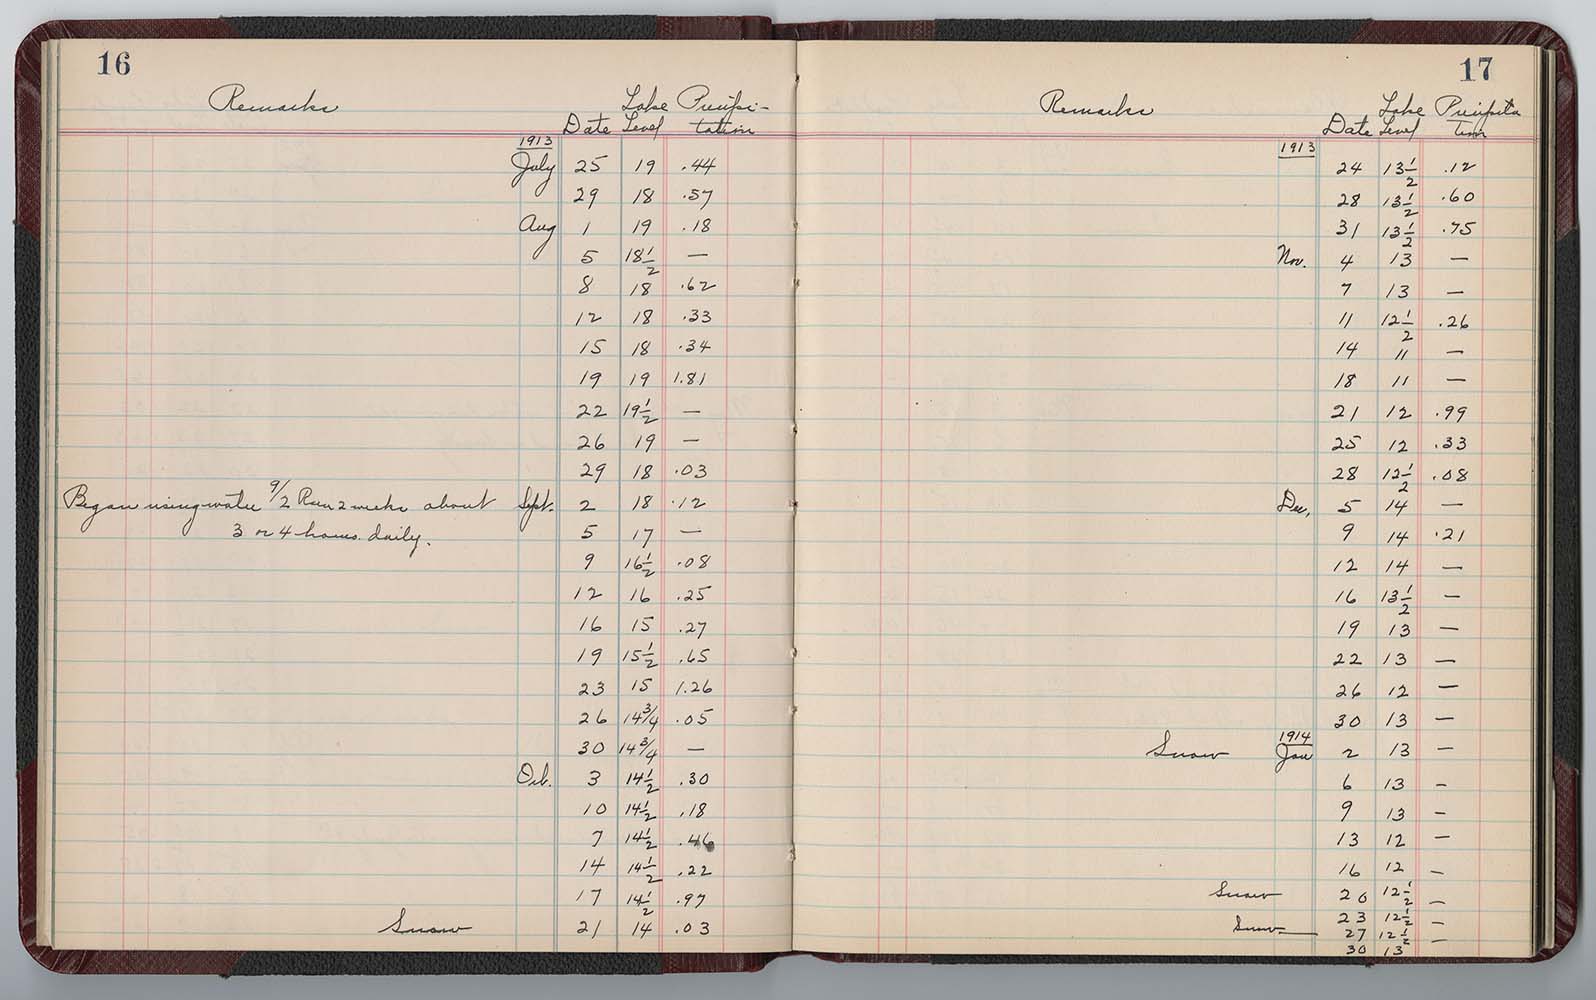 16
Remarks Date Lake Level Precipi-tation
1913
July 25 19 .44
29 18 .57
Aug 1 19 .18
5 18 1/2 —
8 18 .62
12 18 .33
15 18 .34
19 19 1.81
22 19 1/2 —
26 19 —
29 18 .03
Began using water 9/2 Ran 2 weeks about Sept. 2 18 .12
3 or 4 hours daily. 5 17 —
9 16 1/2 .08
12 16 .25
16 15 .27
19 15 1/2 .65
23 15 1.26
26 14 3/4 .05
30 14 3/4 —
Oct. 3 14 1/2 .30
10 14 1/2 .18
7 14 1/2 .46
14 14 1/2 .22
17 14 1/2 .97
Snow 21 14 .03
17
Remarks Date Lake Level Precipita tion
1913
24 13 1/2 .12
28 13 1/2 .60
31 13 1/2 .75
Nov. 4 13 —
7 13 —
11 12 1/2 .26
14 11 —
18 11 —
21 12 .99
25 12 .33
28 12 1/2 .08
Dec, 5 14 —
9 14 .21
12 14 —
16 13 1/2 —
19 13 —
22 13 —
26 12 —
30 13 —
1914
Snow Jan 2 13 —
6 13 —
9 13 —
13 12 —
16 12 —
Snow 20 12 1/2 —
23 12 1/2 —
Snow 27 12 1/2 —
30 13